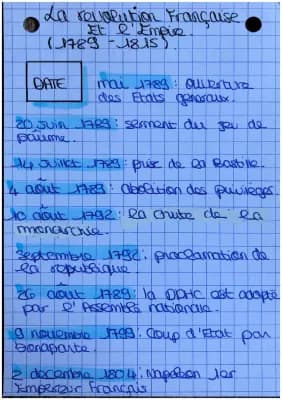 La revolution Française
Et l'Empire.
(1789 - 1815)
DATE
mai 1789 : ouverture
des Etats généraux.
20 juin 1789 : serment du jeu de
paume.
14 juillet 1789 : prise de la Bastille.
4 août 1789 : abolition des privileges
10 août 1792 : la chute de la
monarchie.
septembre 1792 : proclamation de
la republique.
26 août 1789 : la DDHC est adopté
par l'Assemblé nationale.
9 novembre 1799 : Coup d'Etat par
bonaparte.
2 decembre 1804 : Napoléon 1er
Empereur Français